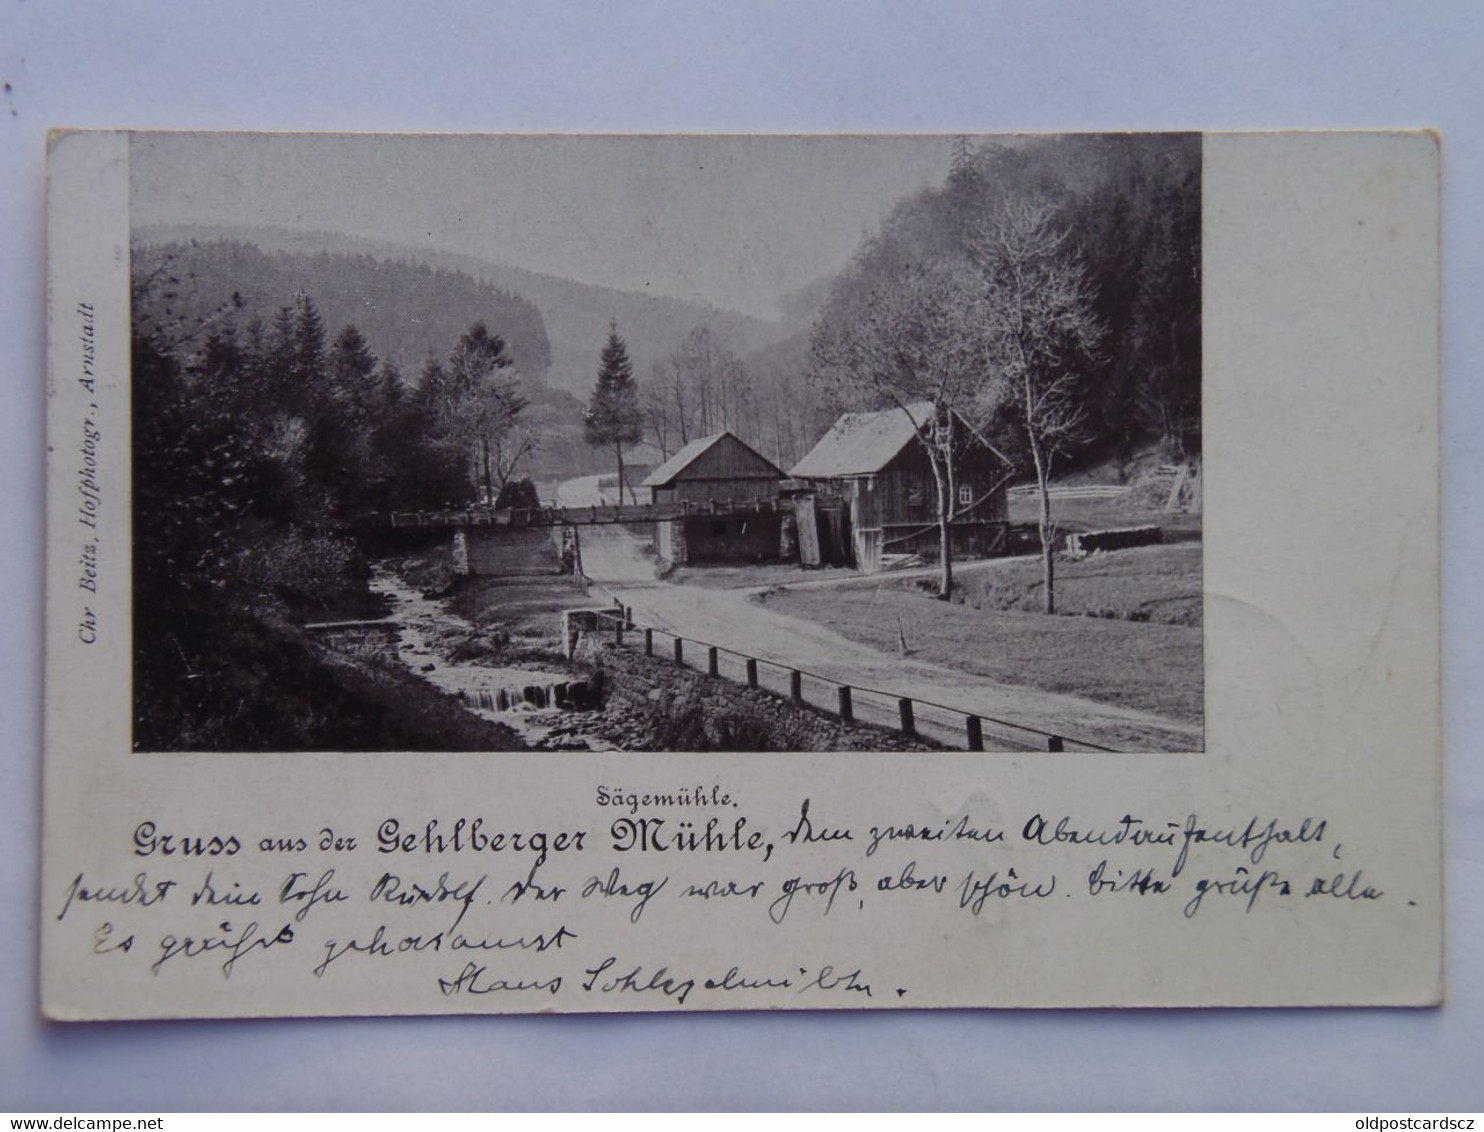 Chr Beitz, Hofphotogr., Arnstadt
Sägemühle.
Gruss aus der Gehlberger Mühle, dem zweiten Abendaufenthalt,
sendet dein Sohn Rudolf. Der Weg war groß, aber schön. Bitte grüße alle.
Es grüßt gehorsamst
Hans Schlegelmilch.
delcampe.net
oldpostcardscz